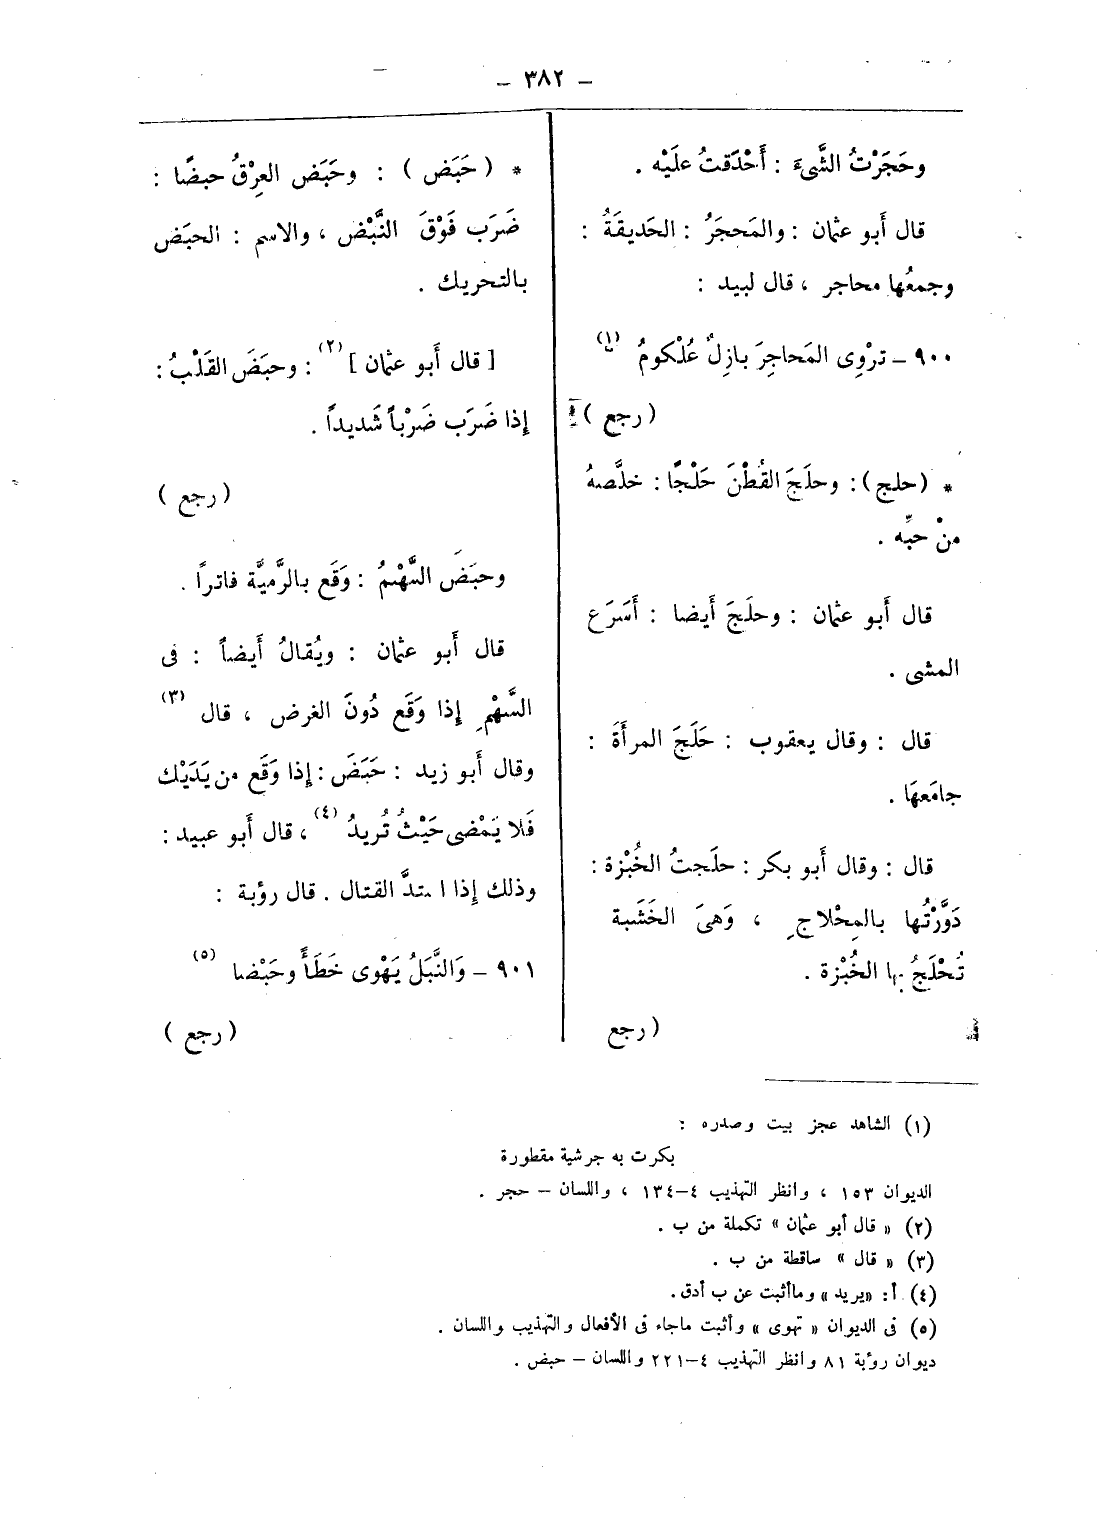 – ٣٨٢ –
وحَجَرْتُ الشَّىءَ : أَحْدَقتُ علَيْه .
قال أَبو عثمان : والمَحجَرُ : الحَديقَةُ :
وجمعُها محاجر ، قال لبيد :
٩٠٠ – تَرْوِى المَحاجِرَ بازِلٌ عُلْكومُ (١)
( رجع )
* (حلج) : وحلَجَ القُطْنَ حَلْجًا : خلَّصهُ
منْ حبِّه .
قال أَبو عثمان : وحلَجَ أيضا : أَسَرَع
المشى .
قال : وقال يعقوب : حَلَجَ المرأَةَ :
جامَعهَا .
قال : وقال أَبو بكر : حلَجتُ الخُبْزة :
دَوَّرْتُها بالمِحْلاجِ ، وَهىَ الخَشَبة
تُحْلَجُ بها الخُبْزة .
( رجع
* ( حَبَض ) : وحَبَض العِرْقُ حبضًا :
ضَرَب فَوْقَ النَّبْض ، والاسم : الحبَض
بالتحريك .
[ قال أَبو عثمان ] (٢) : وحبَضَ القَلْبُ :
إِذا ضَرَب ضَرْباً شَديداً .
( رجع )
وحبَضَ السَّهْمُ : وَقَع بالرَّميَّة فاتراً .
قال أَبو عثمان : ويُقالُ أَيضاً : فى
السَّهْمِ إِذا وَقَع دُونَ الغرض ، قال (٣)
وقال أَبو زيد : حَبَضَ : إِذا وَقَع من يَدَيْك
فَلا يَمْضى حَيْثُ تُريدُ (٤) ، قال أَبو عبيد :
وذلك إِذا اشتدَّ القتال . قال رؤبة :
٩٠١ – وَالنَّبَلُ يَهْوى خَطَأً وحَبْضا (٥)
( رجع )
(١) الشاهد عجز بيت وصدره :
بكرت به جرشية مقطورة
الديوان ١٥٣ ، وانظر التهذيب ٤–١٣٤ ، واللسان – حجر .
(٢) « قال أبو عثمان » تكملة من ب .
(٣) « قال » ساقطة من ب .
(٤) أ: «يريد» وماأثبت عن ب أدق.
(٥) فى الديوان « تهوى » وأثبت ماجاء فى الأفعال والتهذيب واللسان .
ديوان رؤبة ٨١ وانظر التهذيب ٤–٢٢١ واللسان – حبض .